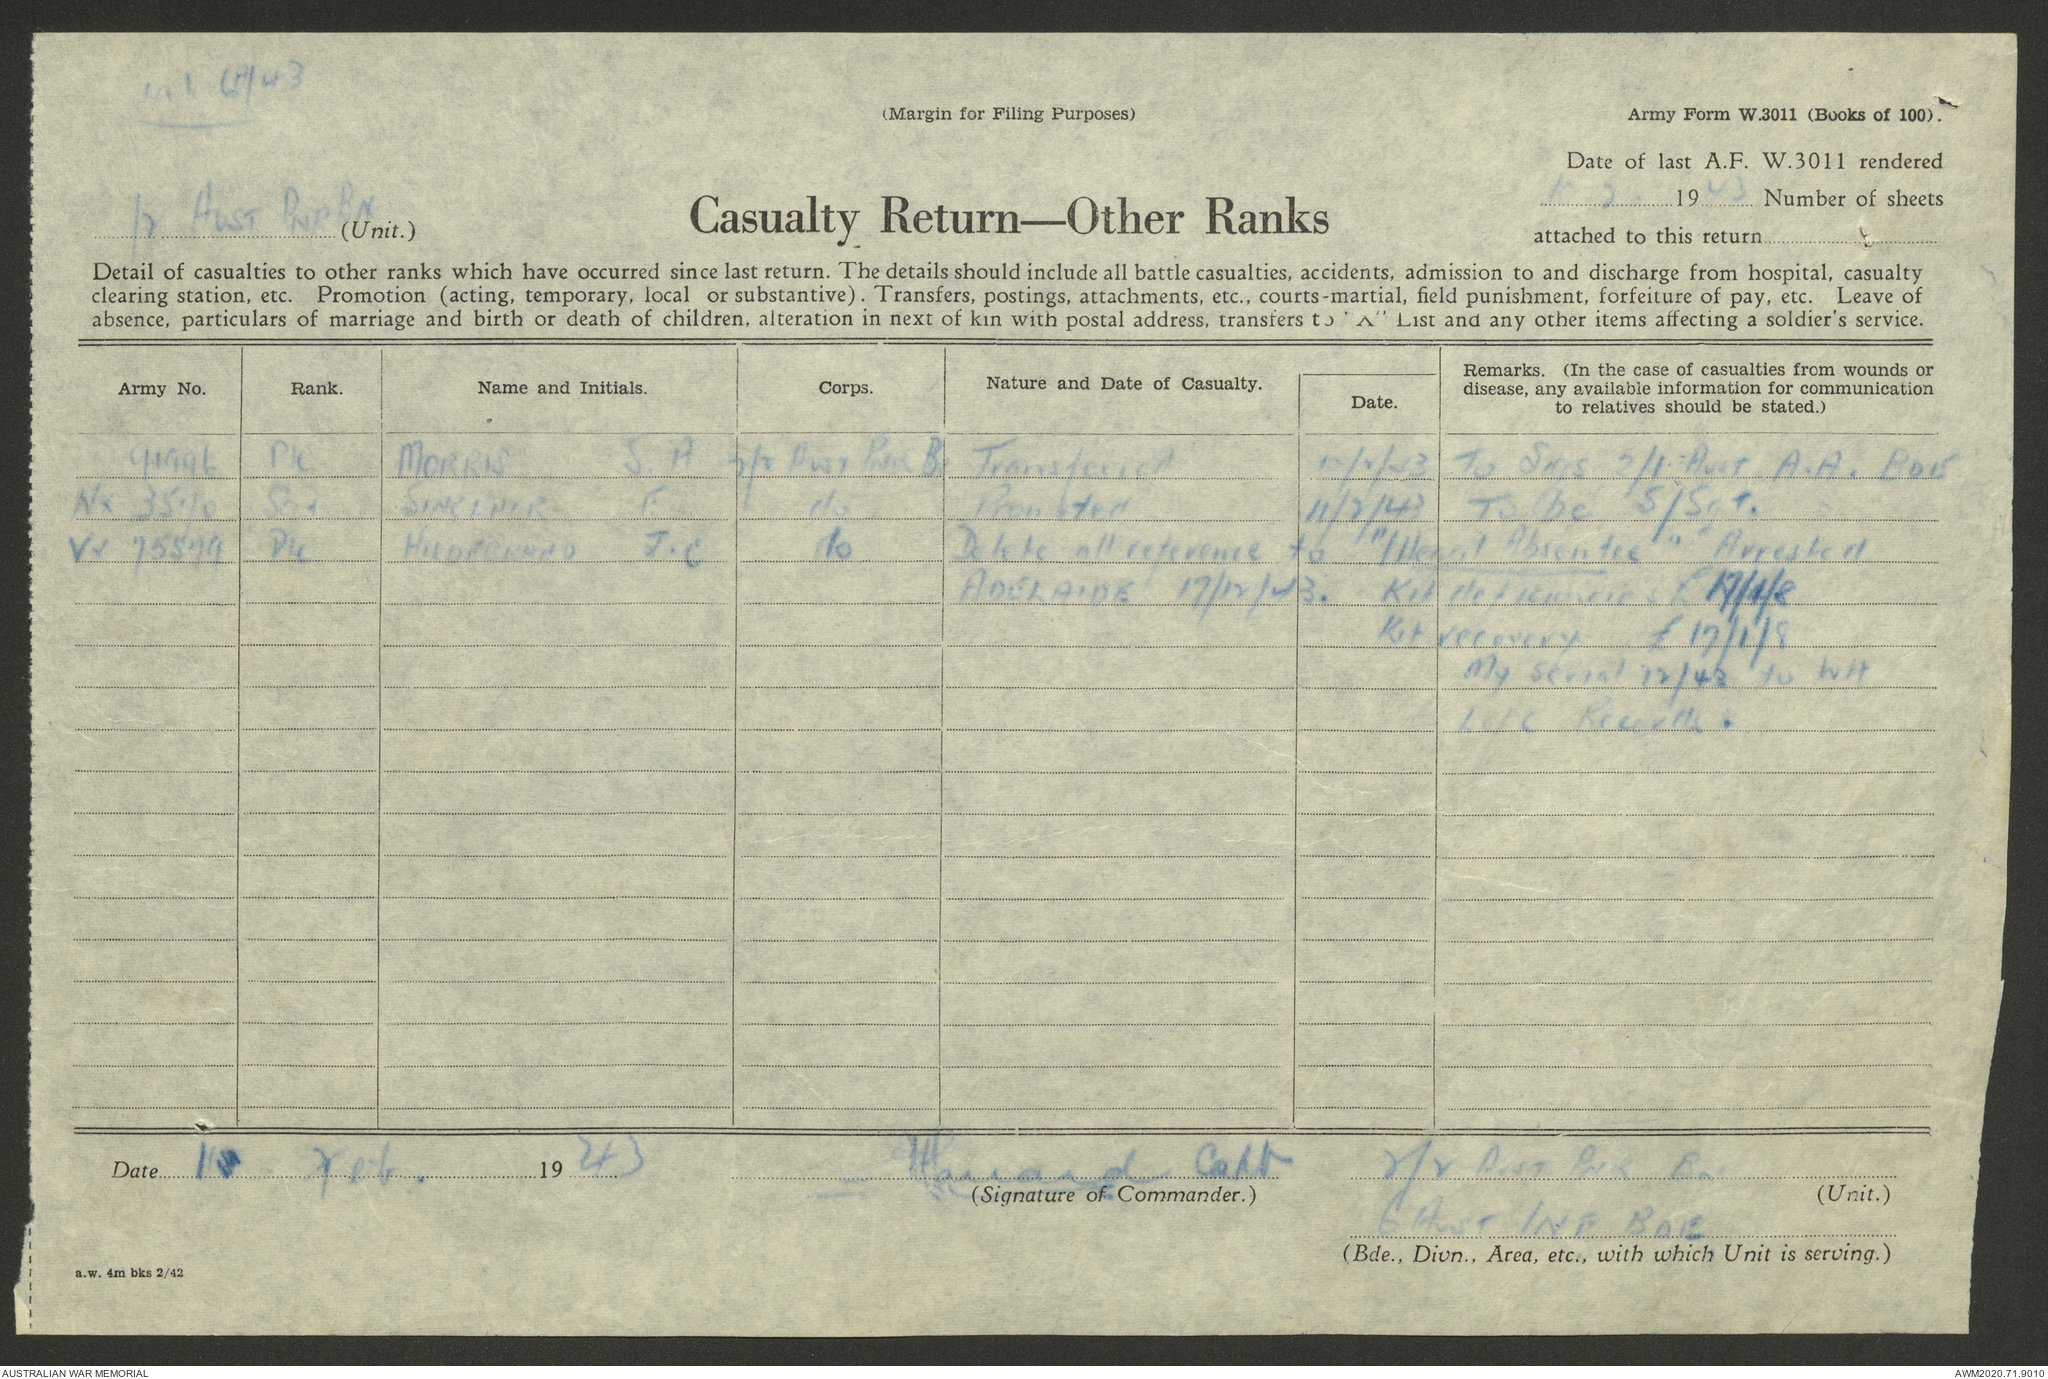 /43
(Margin for Filing Purposes)
Army Form W.3011 (Books of 100).
Date of last A.F. W.3011 rendered
19 43 Number of sheets
attached to this return
AUST PNR BN (Unit.)
Casualty Return—Other Ranks
Detail of casualties to other ranks which have occurred since last return. The details should include all battle casualties, accidents, admission to and discharge from hospital, casualty
clearing station, etc. Promotion (acting, temporary, local or substantive). Transfers, postings, attachments, etc., courts-martial, field punishment, forfeiture of pay, etc. Leave of
absence, particulars of marriage and birth or death of children, alteration in next of kin with postal address, transfers to "X" List and any other items affecting a soldier's service.
Army No. Rank. Name and Initials. Corps. Nature and Date of Casualty. Date. Remarks. (In the case of casualties from wounds or
disease, any available information for communication
to relatives should be stated.)
Pte MORRIS S. A 2/2 Aust Pnr Bn Transferred /2/43 To Sigs 2/1 Aust A.A. BDE
NX Sgt SINCLAIR F. do Promoted 11/2/43 To be S/Sgt.
VX 75579 Pte HILDEBRAND J. C do Delete all reference to "Illegal Absentee" Arrested
ADELAIDE 17/12/43. Kit deficiencies £ 17/1/8
Kit recovery £ 17/1/8
My serial 12/43 to WA
L of C Records.
Date Feb. 19 43
Capt
(Signature of Commander.)
2/2 AUST PNR BN (Unit.)
6 AUST INF BDE
(Bde., Divn., Area, etc., with which Unit is serving.)
a.w. 4m bks 2/42
AUSTRALIAN WAR MEMORIAL
AWM2020.71.9010